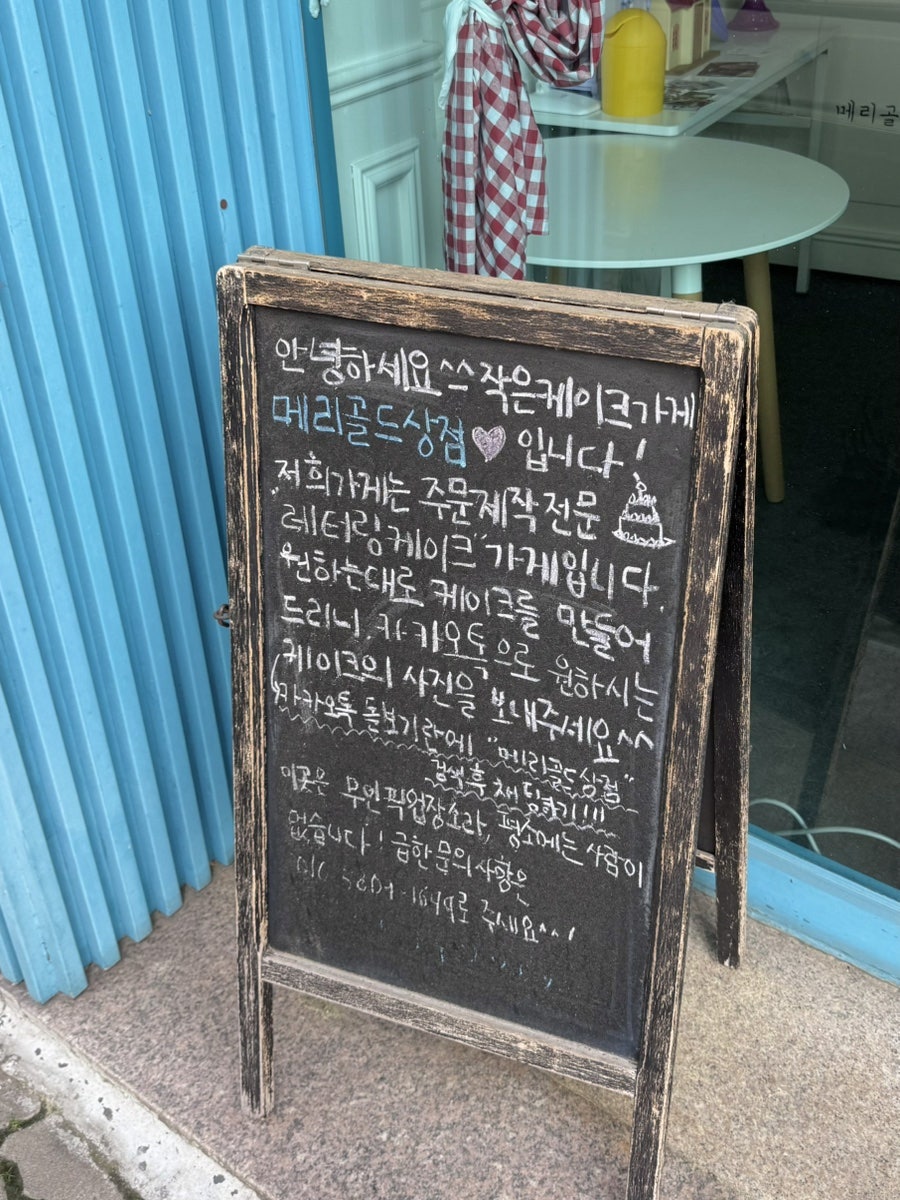 메리골
안녕하세요^^ 작은케이크가게
메리골드상점♥ 입니다!
저희가게는 주문제작전문
"레터링케이크"가게입니다.
원하는대로 케이크를 만들어
드리니, 카카오톡으로 원하시는
케이크의 사진을 보내주세요^^
(카카오톡 돋보기란에 "메리골드상점"
검색 후 채팅
이곳은 무인픽업장소라, 평소에는 사람이
없습니다! 급한문의사항은
주세요^^